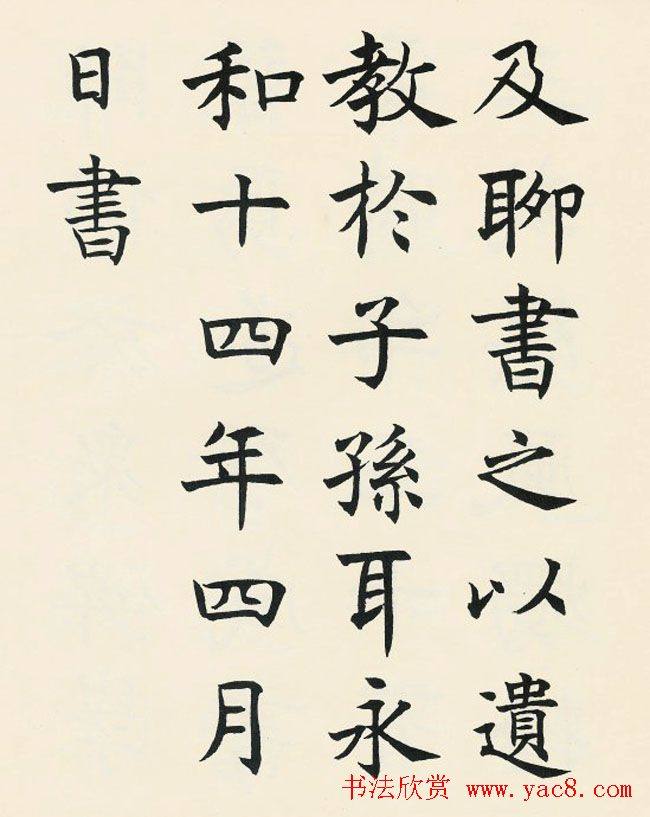 及聊書之以遺
教於子孫耳永
和十四年四月
日書
书法欣赏 www.yac8.com